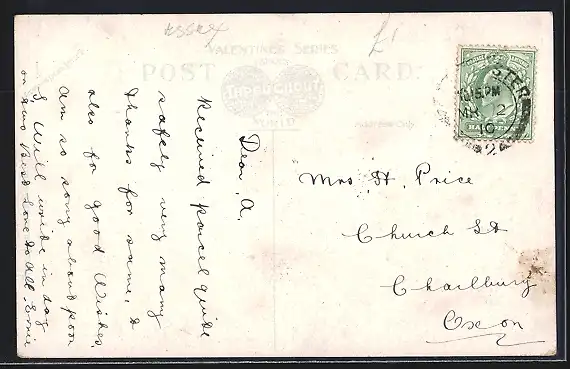 Essex
£1
VALENTINE'S SERIES
POST CARD.
THROUGHOUT
WORLD
Address Only
Dear A.
Received parcel quite
safely very many
thanks for same, &
also for good Wishes.
Am so sorry about poor
I will write in day
or two Best Love to All. Ernie
Mrs H. Price
Church St
Charlbury
Oxon
STER
PM
2
10